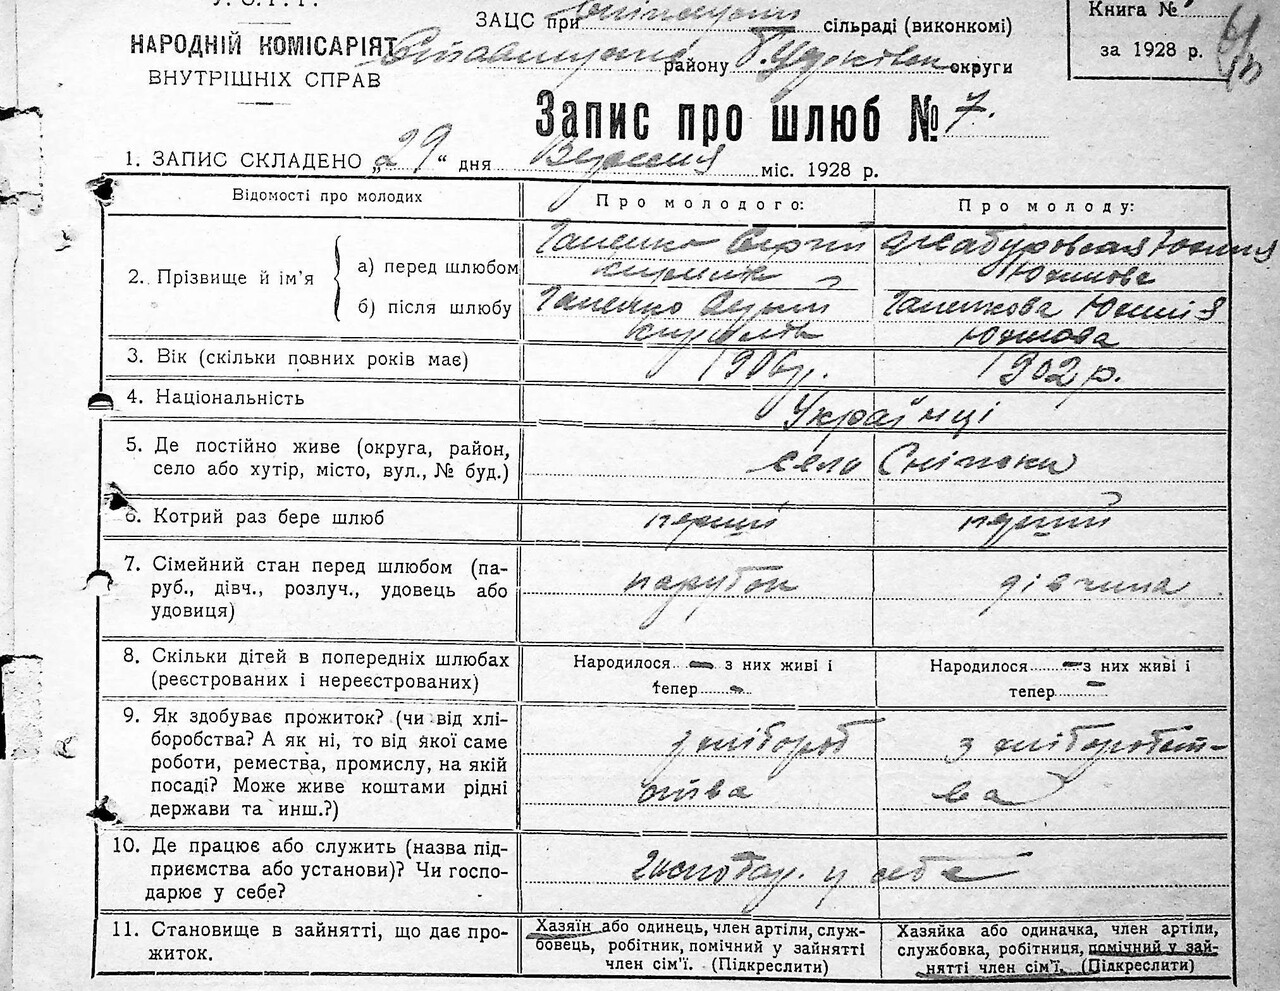 У. С. Р. Р.
НАРОДНІЙ КОМІСАРІЯТ
ВНУТРІШНІХ СПРАВ
ЗАЦС при сільраді (виконкомі)
району округи
Книга №
за 1928 р.
Запис про шлюб № 7.
1. ЗАПИС СКЛАДЕНО „29“ дня Вересня міс. 1928 р.
Відомості про молодих
Про молодого:
Про молоду:
2. Прізвище й ім'я
а) перед шлюбом
Гапенко Сергій
Юхимова
б) після шлюбу
Гапенко Сергій
Гапенкова
Юхимова
3. Вік (скільки повних років має)
1906 р.
1902 р.
4. Національність
Українці
5. Де постійно живе (округа, район,
село або хутір, місто, вул., № буд.)
село
6. Котрий раз бере шлюб
перший
перший
7. Сімейний стан перед шлюбом (па-
руб., дівч., розлуч., удовець або
удовиця)
парубок
дівчина
8. Скільки дітей в попередніх шлюбах
(реєстрованих і нереєстрованих)
Народилося – з них живі і
тепер –
Народилося – з них живі і
тепер –
9. Як здобуває прожиток? (чи від хлі-
боробства? А як ні, то від якої саме
роботи, ремества, промислу, на якій
посаді? Може живе коштами рідні
держави та инш.?)
з хлібороб
ства
з хліборобст-
ва
10. Де працює або служить (назва під-
приємства або установи)? Чи госпо-
дарює у себе?
Господар. у себе
11. Становище в зайнятті, що дає про-
житок.
Хазяїн або одинець, член артіли, служ-
бовець, робітник, помічний у зайнятті
член сім'ї. (Підкреслити)
Хазяйка або одиначка, член артіли,
службовка, робітниця, помічний у зай-
нятті член сім'ї. (Підкреслити)